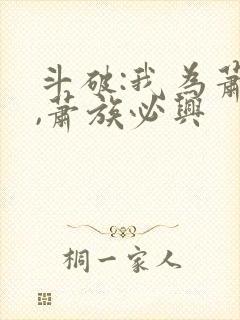 斗破:我为萧
,萧族必兴
桐一家人